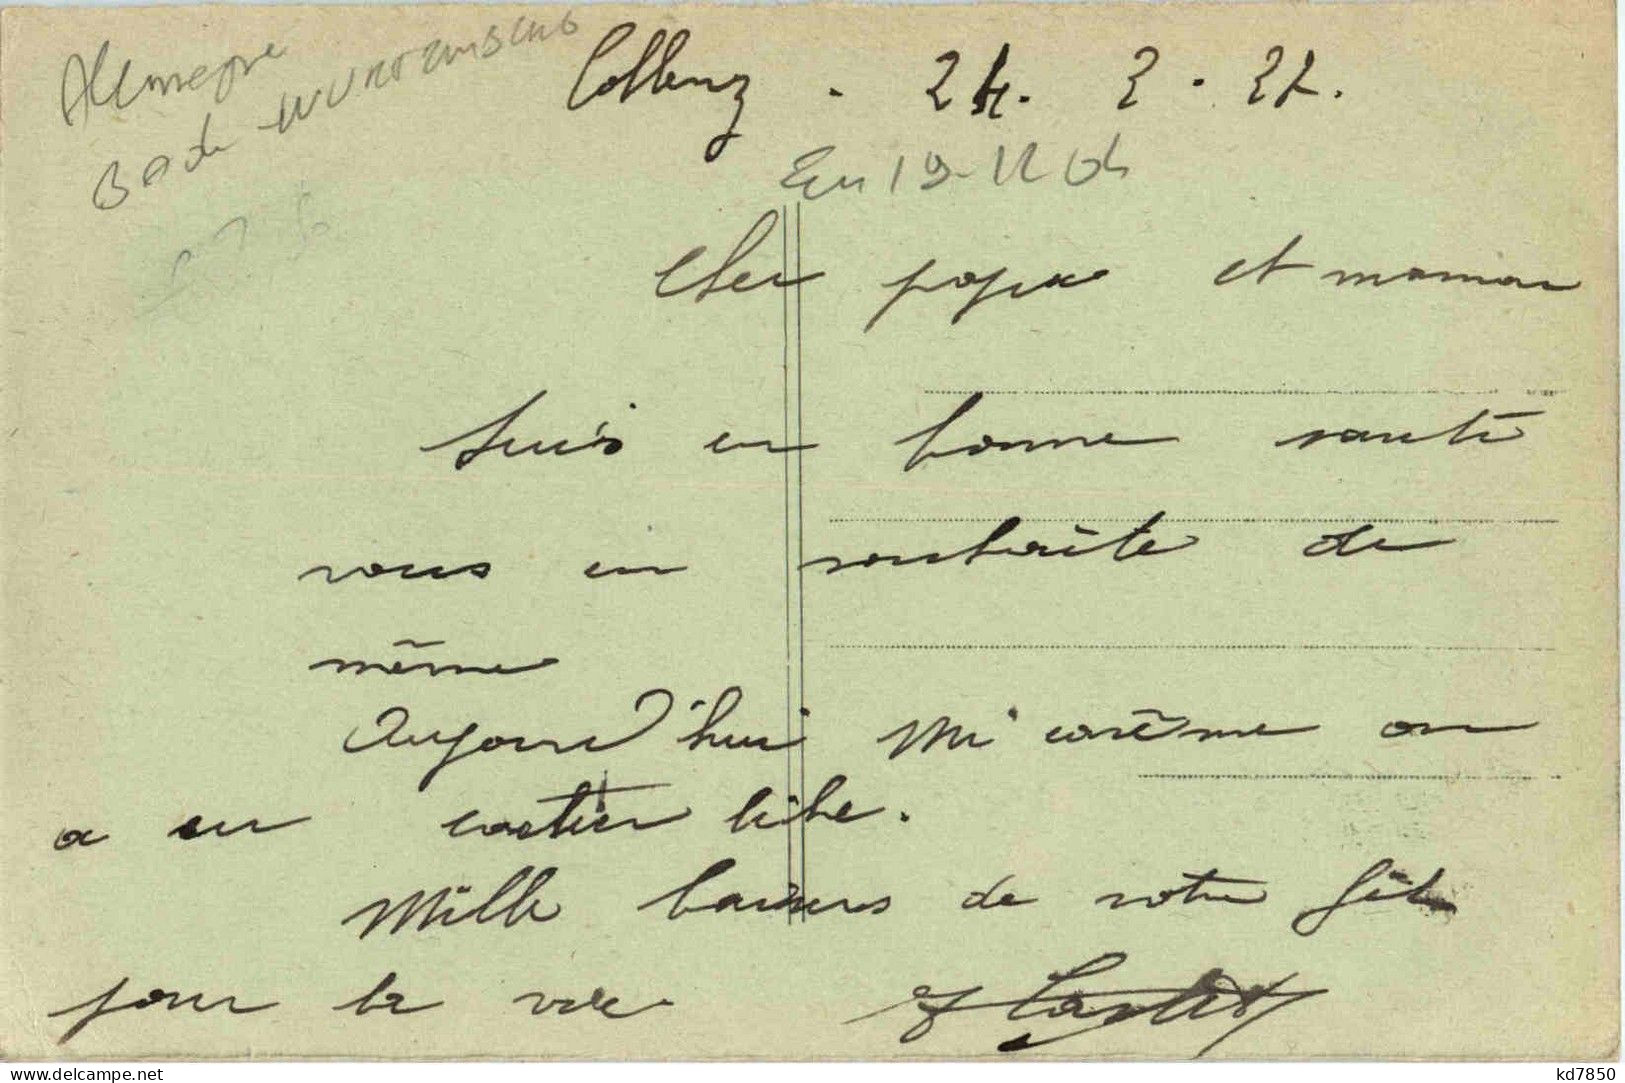 Allemagne
Bade Wurtemberg
Coblenz . 24. 2 . 22.
19-12 04
Cher papa et maman
Suis en bonne santé
vous en souhaite de
même
Aujourd'hui Mi carême on
a eu cartier libre.
Mille baisers de votre fils
pour la vie
www.delcampe.net
kd7850